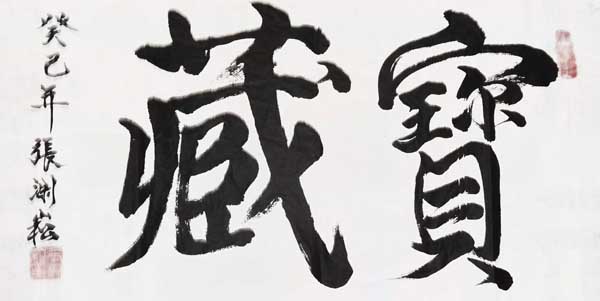 寶藏
癸巳年張渊崧